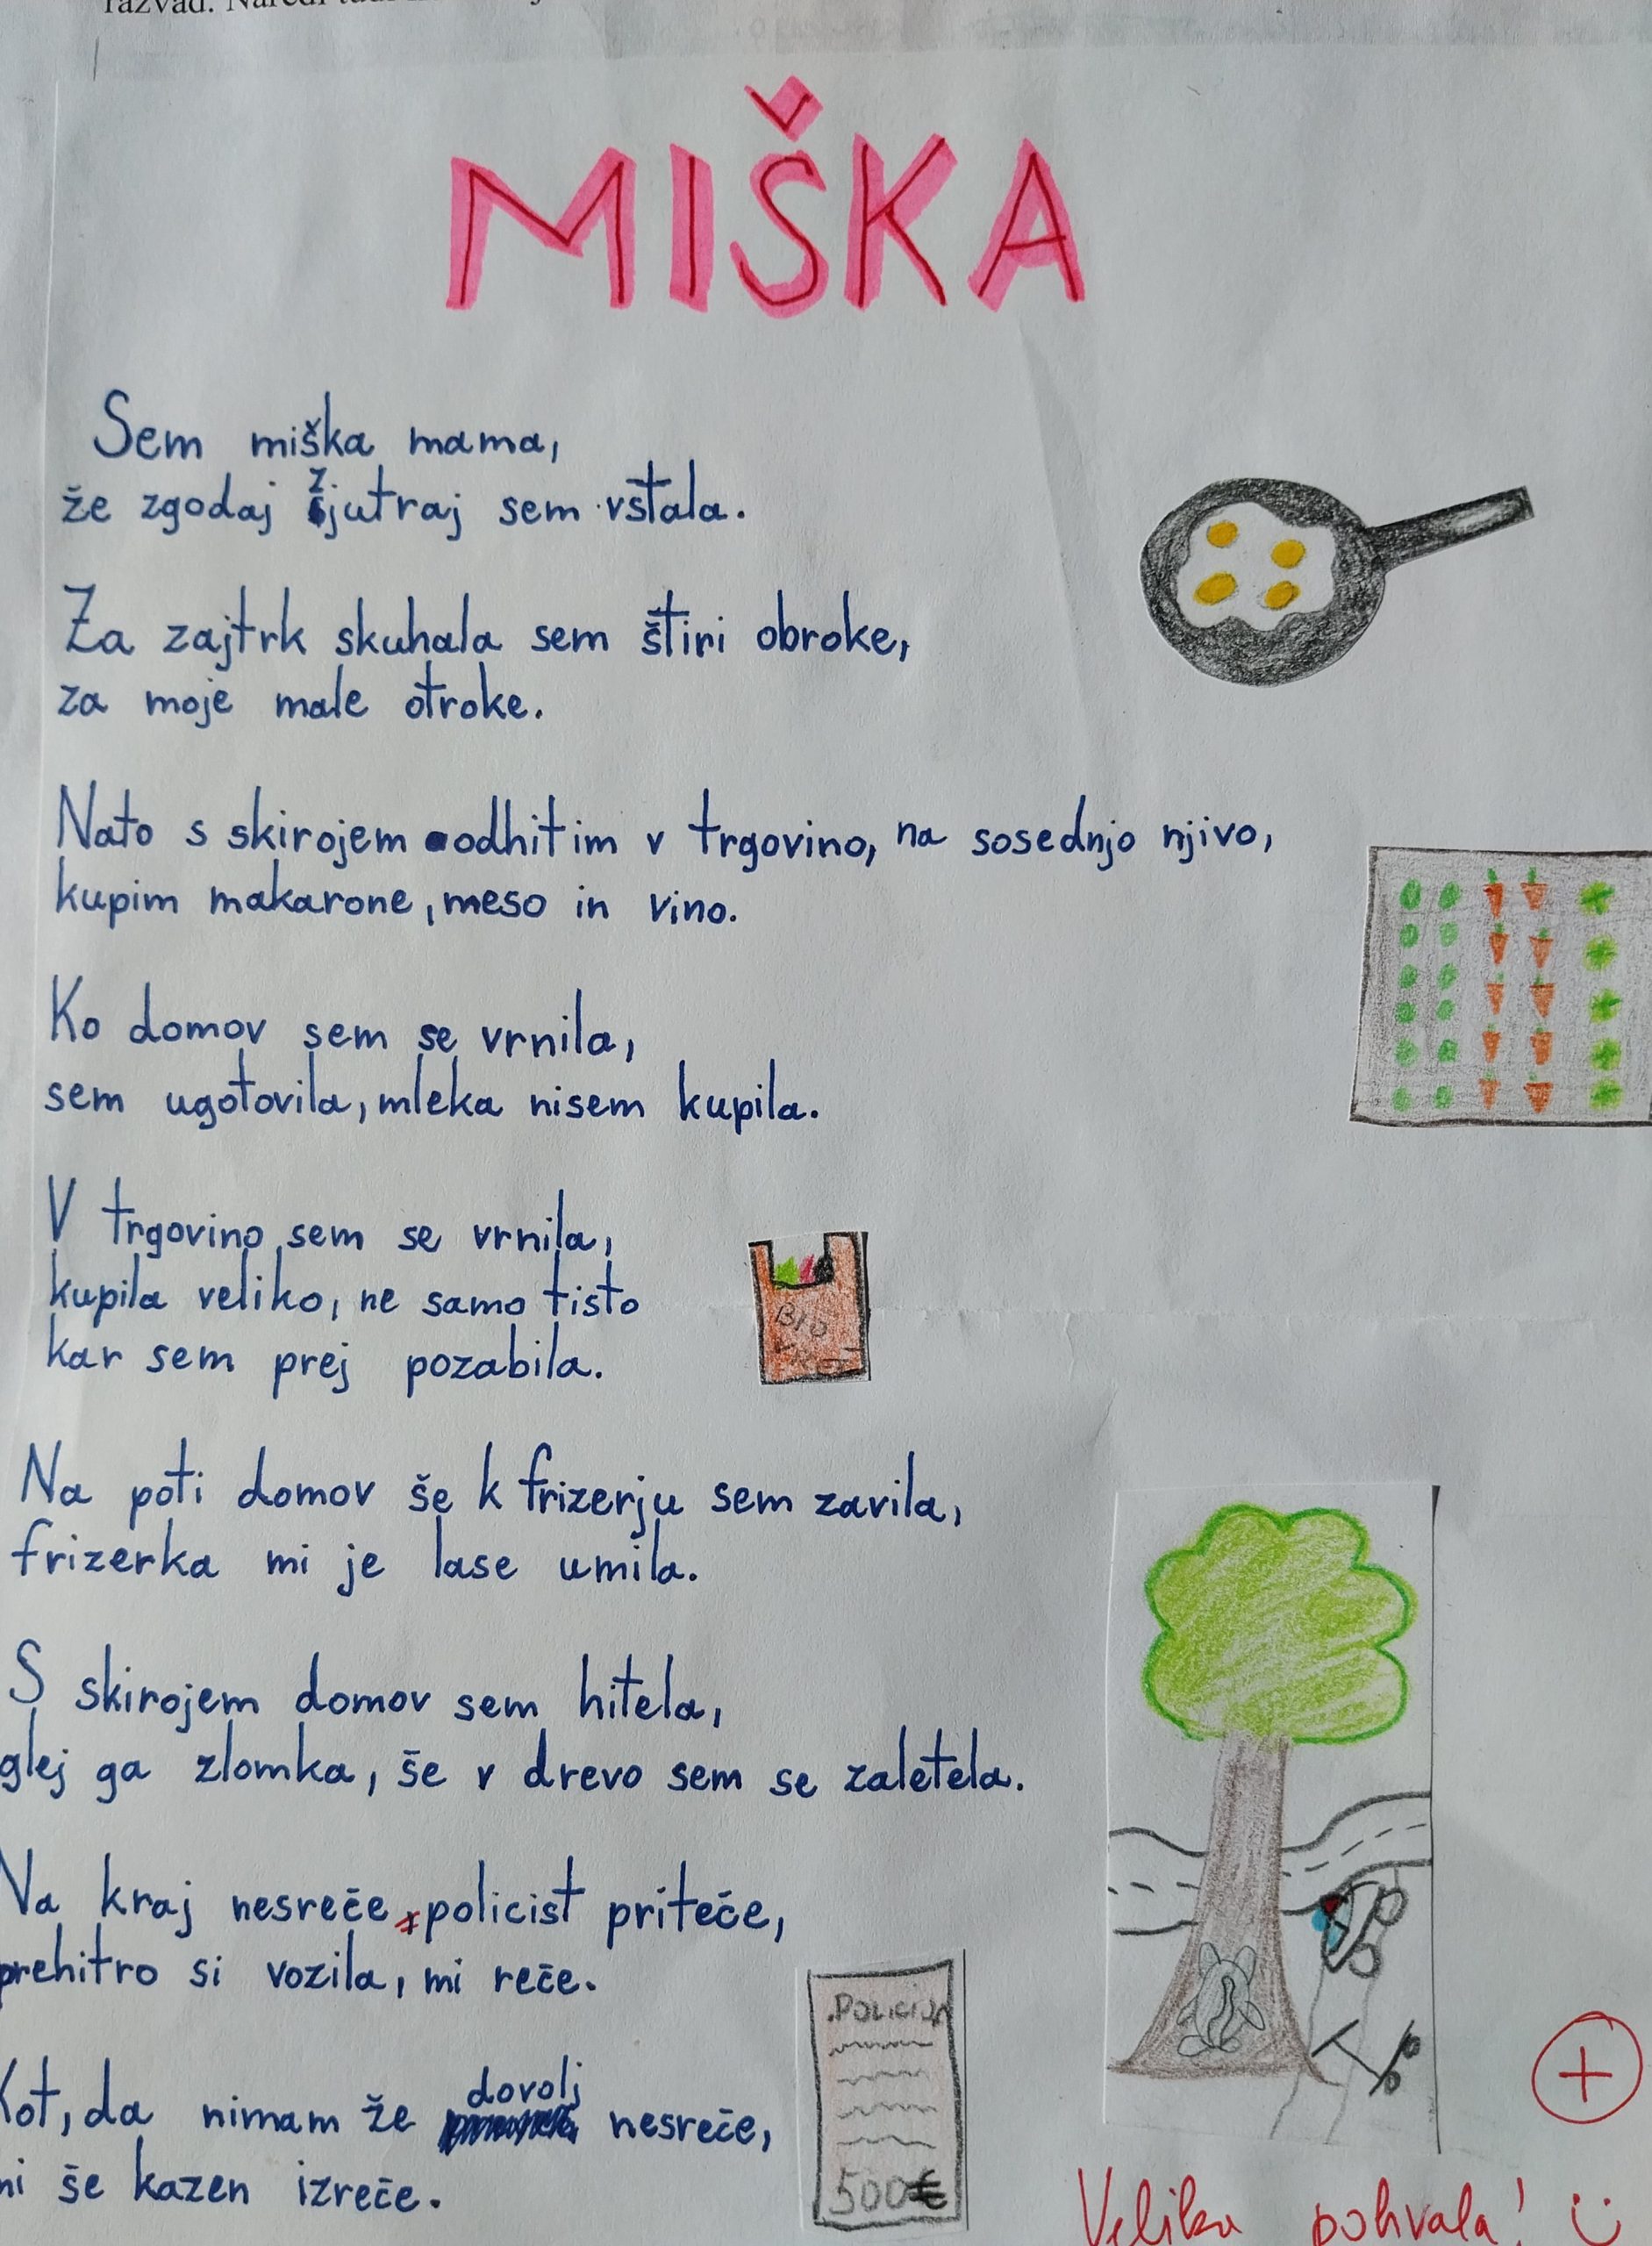 razvad. Naredi
MIŠKA
Sem miška mama,
že zgodaj zjutraj sem vstala.
Za zajtrk skuhala sem štiri obroke,
za moje male otroke.
Nato s skirojem odhitim v trgovino, na sosednjo njivo,
kupim makarone, meso in vino.
Ko domov sem se vrnila,
sem ugotovila, mleka nisem kupila.
V trgovino sem se vrnila,
kupila veliko, ne samo tisto
kar sem prej pozabila.
BIO
Na poti domov še k frizerju sem zavila,
frizerka mi je lase umila.
S skirojem domov sem hitela,
glej ga zlomka, še v drevo sem se zaletela.
Na kraj nesreče policist priteče,
prehitro si vozila, mi reče.
Kot, da nimam že dovolj nesreče,
mi še kazen izreče.
POLICIJA
500€
+
Velika pohvala! :)